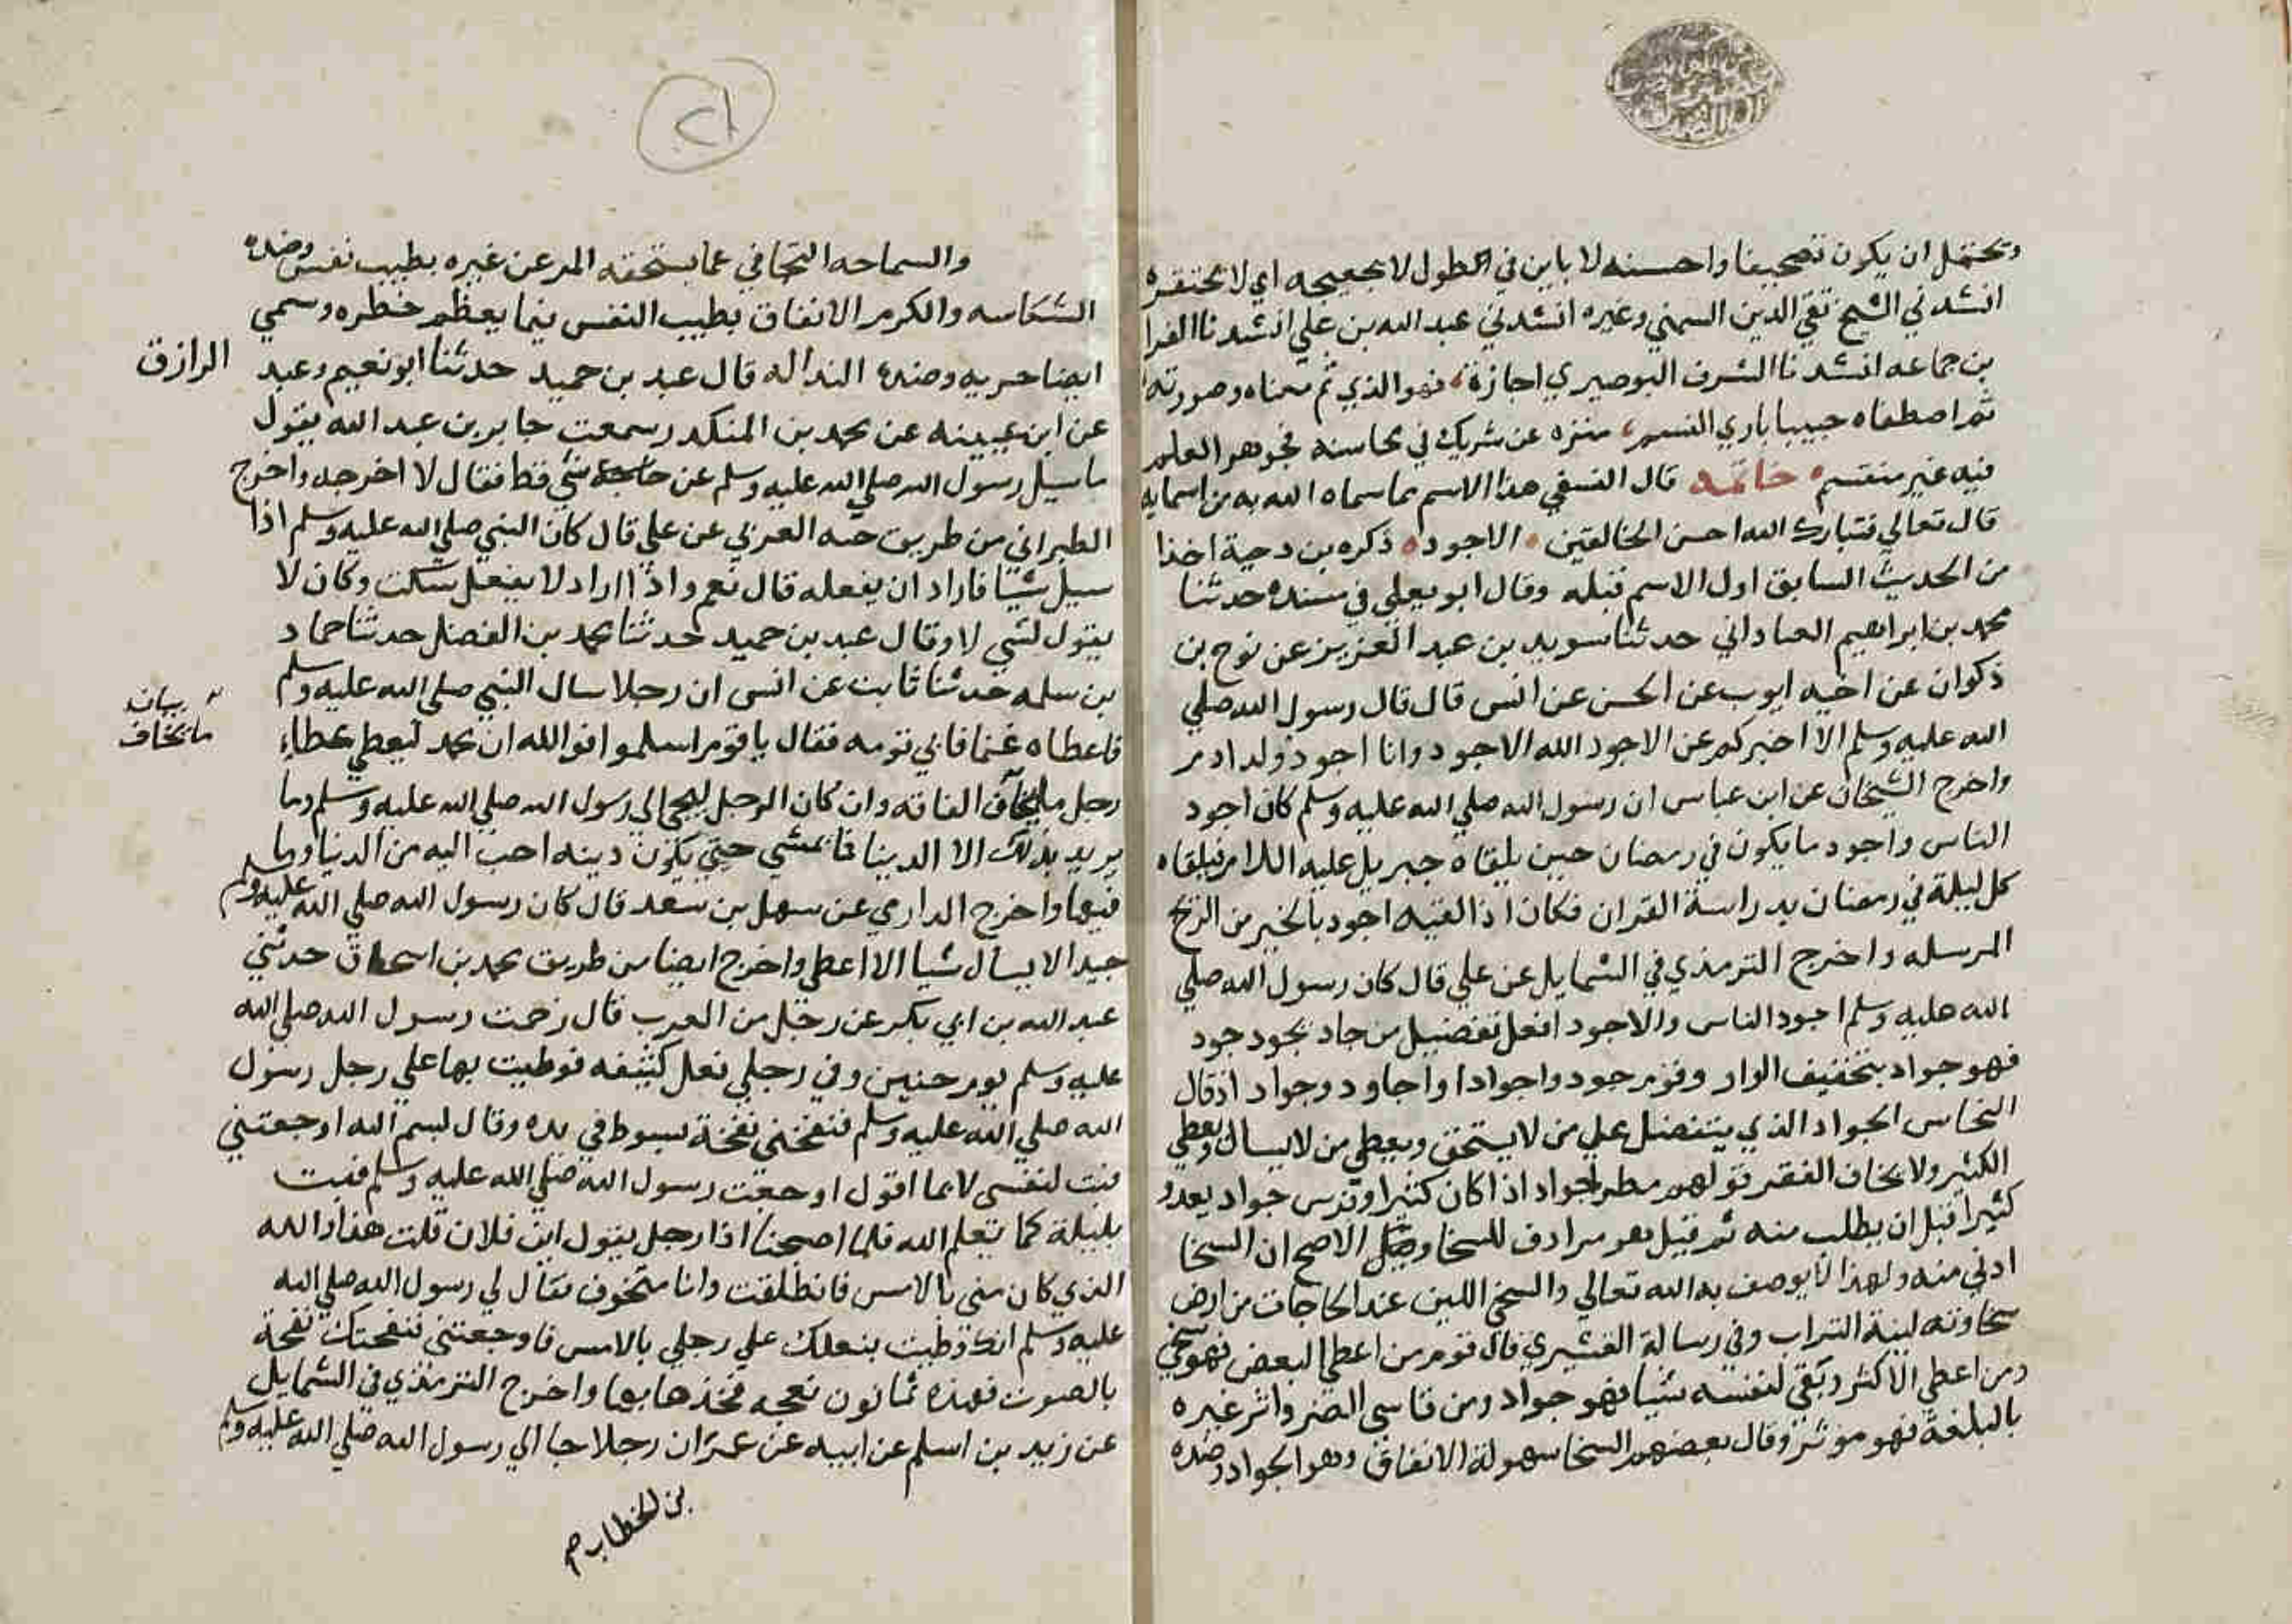 ويحتمل ان يكون تصحيفا واحسنه لا باين في الطول لا بجعيحه اي لا تحتقره
انشدني الشيخ تقي الدين السمني وغيره انشدني عبد الله بن علي انشدنا الفرا
بن جماعه انشدنا الشرف البوصيري اجازة، فهو الذي تم معناه وصورته
ثم اصطفاه حبيبا باري النسم، منزه عن شريك في محاسنه فجوهر العلم
فيه غير منقسم خاتمه قال النسفي هذا الاسم مما سماه الله به من اسمايه
قال تعالي فتبارك الله احسن الخالقين الاجود ذكره بن دحية اخذا
من الحديث السابق اول الاسم قبله وقال ابو يعلي في مسنده حدثنا
محمد بن ابراهيم العباداني حدثنا سويد بن عبد العزيز عن نوح بن
ذكوان عن اخيه ايوب عن الحسن عن انس قال قال رسول الله صلي
الله عليه وسلم الا اخبركم عن الاجود الله الاجود وانا اجود ولد ادم
واخرج الشيخان عن ابن عباس ان رسول الله صلي الله عليه وسلم كان اجود
الناس واجود ما يكون في رمضان حين يلقاه جبريل عليه اللام فيلقاه
كل ليلة في رمضان يدراسة القران فكان اذا لقيه اجود بالخير من الريح
المرسله واخرج الترمذي في الشمايل عن علي قال كان رسول الله صلي
الله عليه وسلم اجود الناس والاجود افعل تفضيل من جاد يجود جود
فهو جواد بتخفيف الواو وقوم جود واجوادا واجاود وجواد اذ قال
النحاس الجواد الذي يتفضل علي من لا يستحق ويعطي من لا يسال ويعطي
الكثير ولا يخاف الفقر قولهم مطر جواد اذا كان كثيرا وفرس جواد يعدو
كثيرا قبل ان يطلب منه ثم قيل هو مرادف للسخا وقيل الاصح ان السخا
ادني منه ولهذا لا يوصف به الله تعالي والسخي اللين عند الحاجات من ارض
سخاوته لينة التراب وفي رسالة القشيري قال قوم من اعطي البعض فهو سخي
ومن اعطي الاكثر وبقي لنفسه شيا فهو جواد ومن قاسي الضر واثر غيره
بالبلغة فهو موثر وقال بعضهم السخا سهولة الانفاق وهو الجواد وضده
٢١
والسماحه التجافي عما يستحقه المر عن غيره بطيب نفس وضده
الشكاسه والكرم الانفاق بطيب النفس فيما يعظم خطره وسمي
ايضا حريه وضده النداله قال عبد بن حميد حدثنا ابو نعيم وعبد
الرازق
عن ابن عيينه عن محمد بن المنكدر سمعت جابر بن عبد الله يقول
ما سيل رسول الله صلي الله عليه وسلم عن حاجة شي قط فقال لا اخرجه واخرج
الطبراني من طريق حبه العرني عن علي قال كان النبي صلي الله عليه وسلم اذا
سيل شيئا فاراد ان يفعله قال نعم واذا اراد لا يفعل سكت وكان لا
يقول لشي لا وقال عبد بن حميد حدثنا محمد بن الفضل حدثنا حماد
بن سلمه حدثنا ثابت عن انس ان رجلا سال النبي صلي الله عليه وسلم
فاعطاه غنما فاتي قومه فقال يا قوم اسلموا فوالله ان محمد ليعطي عطاء
بيانه
ما يخاف
رجل ما يخاف الفاقه وان كان الرجل ليجي الي رسول الله صلي الله عليه وسلم وما
يريد بذلك الا الدنيا فا يمشي حتي يكون دينه احب اليه من الدنيا وما
فيها واخرج الدارمي عن سهل بن سعد قال كان رسول الله صلي الله عليه وسلم
حييا لا يسال شيا الا اعطي واخرج ايضا من طريق محمد بن اسحاق حدثني
عبد الله بن ابي بكر عن رجل من العرب قال زحمت رسول الله صلي الله
عليه وسلم يوم حنين وفي رجلي نعل كثيفه فوطيت بها علي رجل رسول
الله صلي الله عليه وسلم فنفخني نفخة بسوط في يده وقال بسم الله اوجعتني
فبت لنفسي لايما اقول اوجعت رسول الله صلي الله عليه وسلم فبت
بليلة كما يعلم الله فلما اصبحنا اذا رجل يقول اين فلان قلت هذا والله
الذي كان مني بالامس فانطلقت وانا متخوف فقال لي رسول الله صلي الله
عليه وسلم انك وطيت بنعلك علي رجلي بالامس فاوجعتني فنفحتك نفحة
بالصوت فهذه ثمانون نعجه فخذها بها واخرج الترمذي في الشمايل
عن زيد بن اسلم عن ابيه عن عمر ان رجلا جا الي رسول الله صلي الله عليه وسلم
بن الخطاب